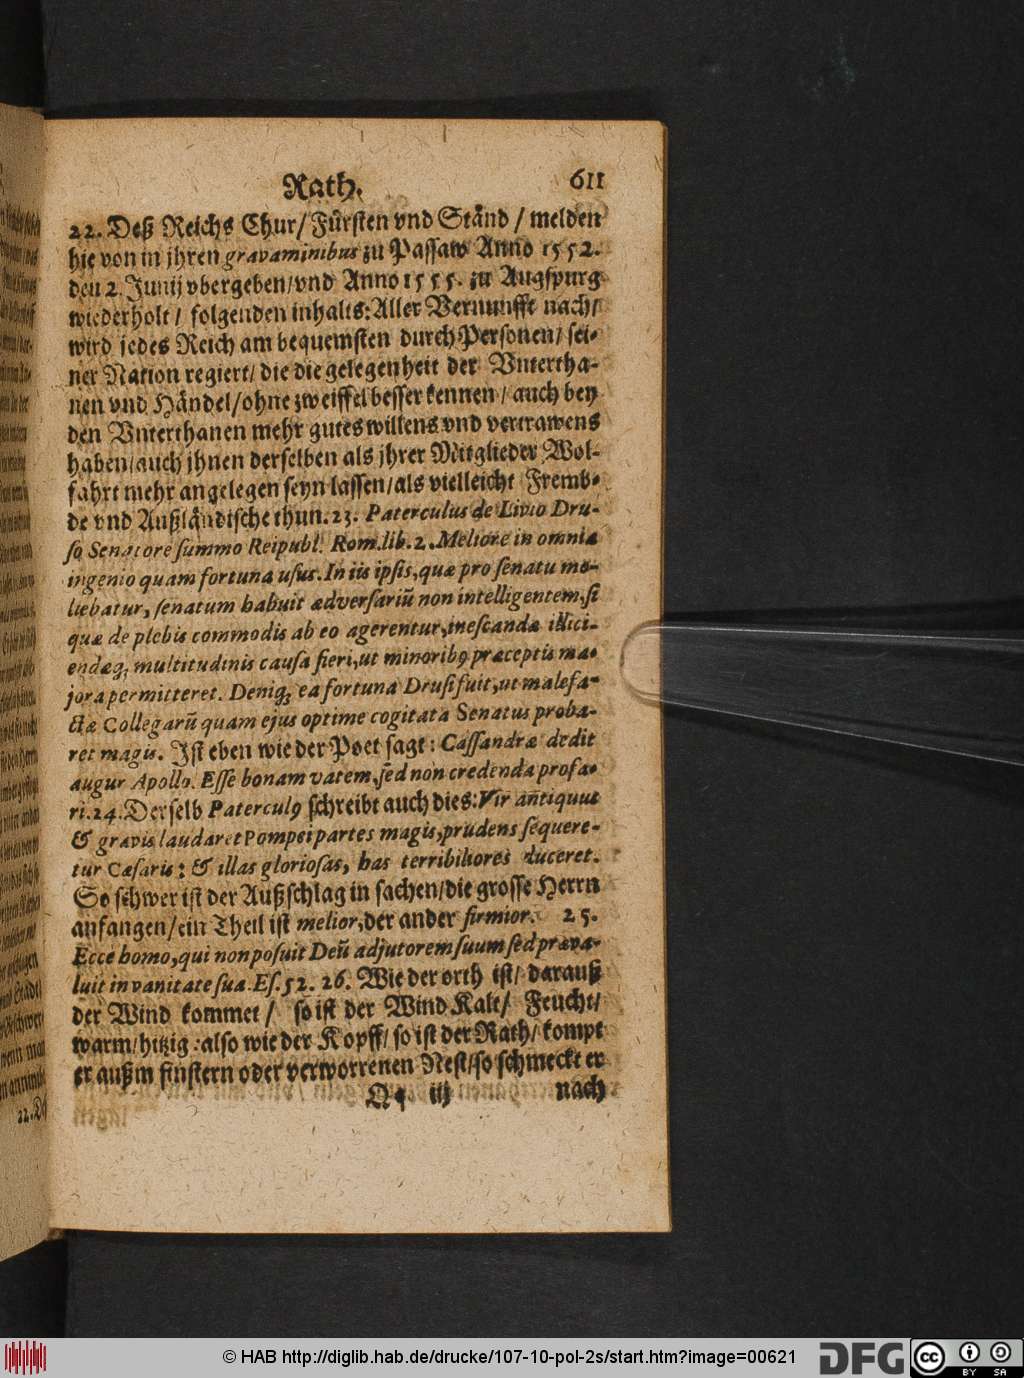 Rath. 611
22. Deß Reichs Chur/Fürsten vnd Ständ/ melden
hie von in jhren gravaminibus zu Passaw Anno 1552.
den 2. Junij vbergeben/vnd Anno 1555. zu Augspurg
wiederholt/ folgenden inhalts: Aller Vernunfft nach/
wird jedes Reich am bequemsten durch Personen/ sei-
ner Nation regiert/ die die gelegenheit der Vntertha-
nen vnd Händel/ohne zweiffel besser kennen/ auch bey
den Vnterthanen mehr gutes willens vnd vertrawens
haben/auch jhnen derselben als jhrer Mitglieder Wol-
fahrt mehr angelegen seyn lassen/als vielleicht Fremb-
de vnd Außländische thun. 23. Paterculus de Livio Dru-
so Senatore summo Reipubl. Rom. lib. 2. Meliore in omnia
ingenio quam fortuna usus. In iis ipsis, quæ pro senatu mo-
liebatur, senatum habuit adversariū non intelligentem, si
quæ de plebis commodis ab eo agerentur, inescandæ illici-
endæq; multitudinis causa fieri, ut minoribꝰ præceptis ma-
jora permitteret. Deniq; ea fortuna Drusi fuit, ut malefa-
cta Collegarū quam ejus optime cogitata Senatus proba-
ret magis. Ist eben wie der Poet sagt: Cassandræ dedit
augur Apollo. Esse bonam vatem, sed non credenda profa-
ri. 24. Derselb Paterculꝰ schreibt auch dies: Vir antiquus
& gravis laudaret Pompei partes magis, prudens sequere-
tur Cæsaris: & illas gloriosas, has terribiliores duceret.
So schwer ist der Außschlag in sachen/die grosse Herrn
anfangen/ein Theil ist melior, der ander firmior. 25.
Ecce homo, qui non posuit Deū adjutorem suum sed præva-
luit in vanitate sua. Es. 52. 26. Wie der orth ist/ darauß
der Wind kommet/ so ist der Wind Kalt/ Feucht/
warm/hitzig: also wie der Kopff/ so ist der Rath/ kompt
er außm finstern oder verworrenen Nest/so schmeckt er
Qq iij nach
22. Deß
© HAB http://diglib.hab.de/drucke/107-10-pol-2s/start.htm?image=00621
DFG
cc BY SA